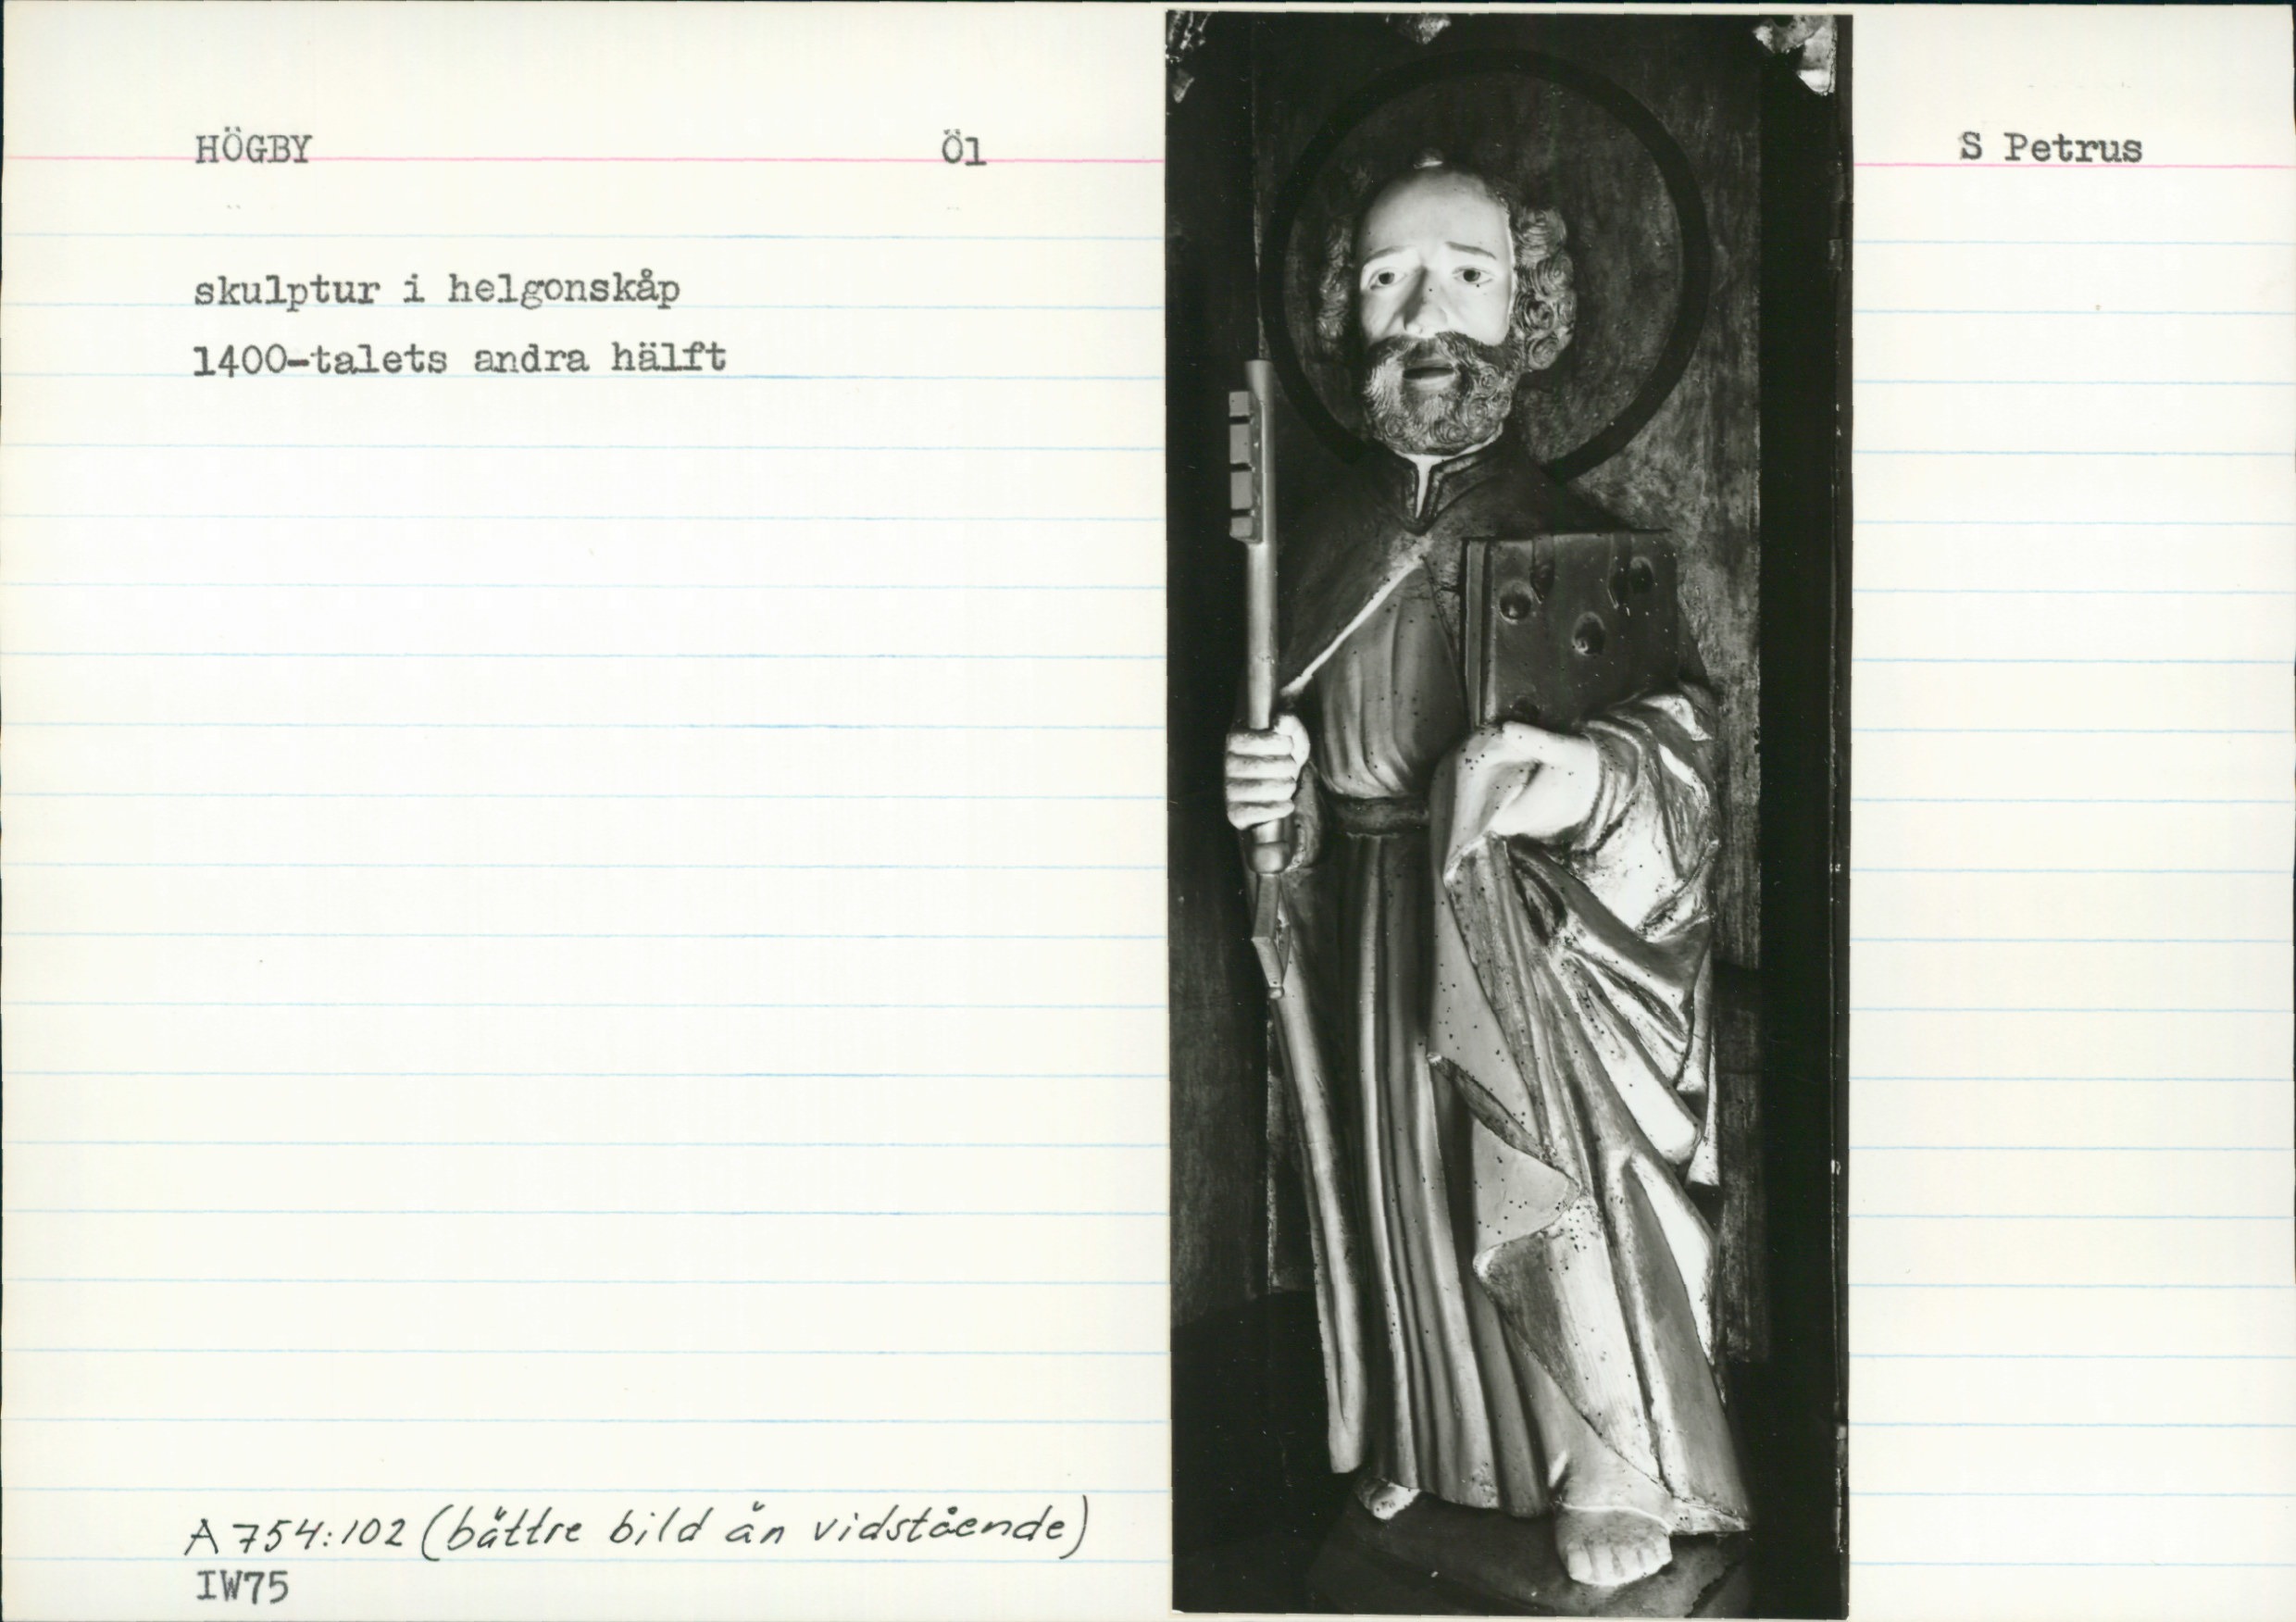 HÖGBY Öl S Petrus
skulptur i helgonskåp
1400-talets andra hälft
A 754:102 (bättre bild än vidstående)
IW75